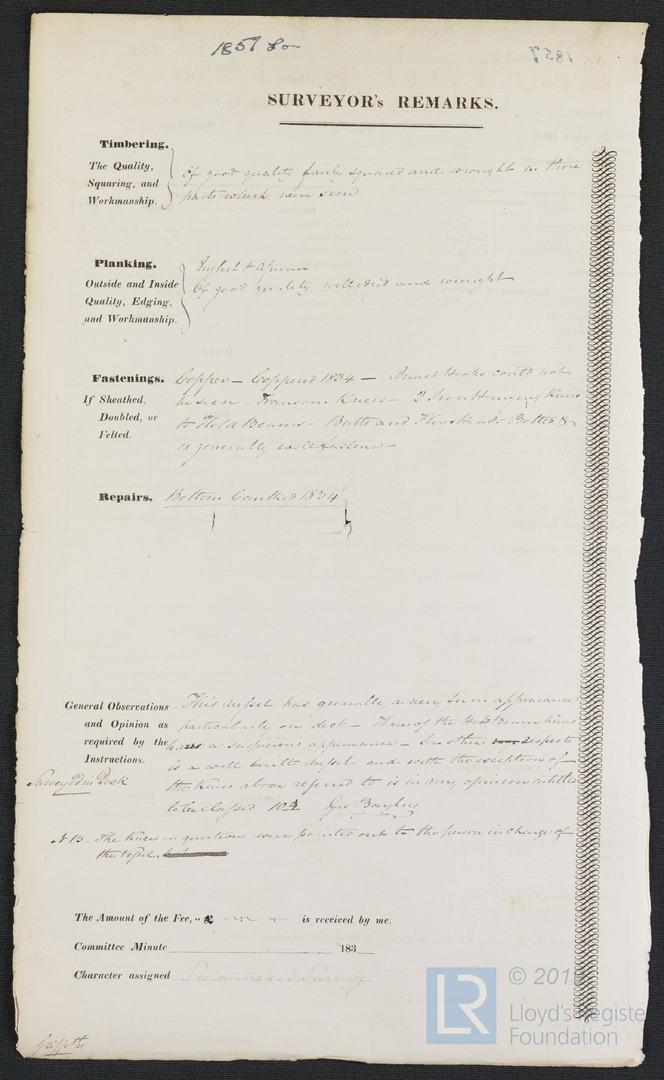 1857 Lon
1857
SURVEYOR's REMARKS.
Timbering.
The Quality,
Squaring, and
Workmanship.
Of good quality fairly squared and wrought in those
parts which were seen
Planking.
Outside and Inside
Quality, Edging,
and Workmanship.
English & African
Of good quality well edged and wrought
Fastenings.
If Sheathed,
Doubled, or
Felted.
Copper - Coppered 1834 - Hooks could not
be seen - Transom Knees - 2 Iron Hanging Knees
to Hold Beams - Butts and Floorheads Bolted &
is generally well fastened -
Repairs. Bottom Caulked 1834
General Observations
and Opinion as
required by the
Instructions.
This Vessel has generally a very firm appearance
particularly on deck - Three of the Hold Beam knees
have a suspicious appearance - In other respects
is a well built Vessel and with the exception of
the knees above referred to is in my opinion entitled
to be classed 10A Geo Bayley
Surveyed in Dock
N B - The knees in question were pointed out to the person in charge of
the Vessel
The Amount of the Fee, £ is received by me.
Committee Minute 183
Character assigned See annexed Survey
Griffiths
LR © 201
Lloyd's Registe
Foundation